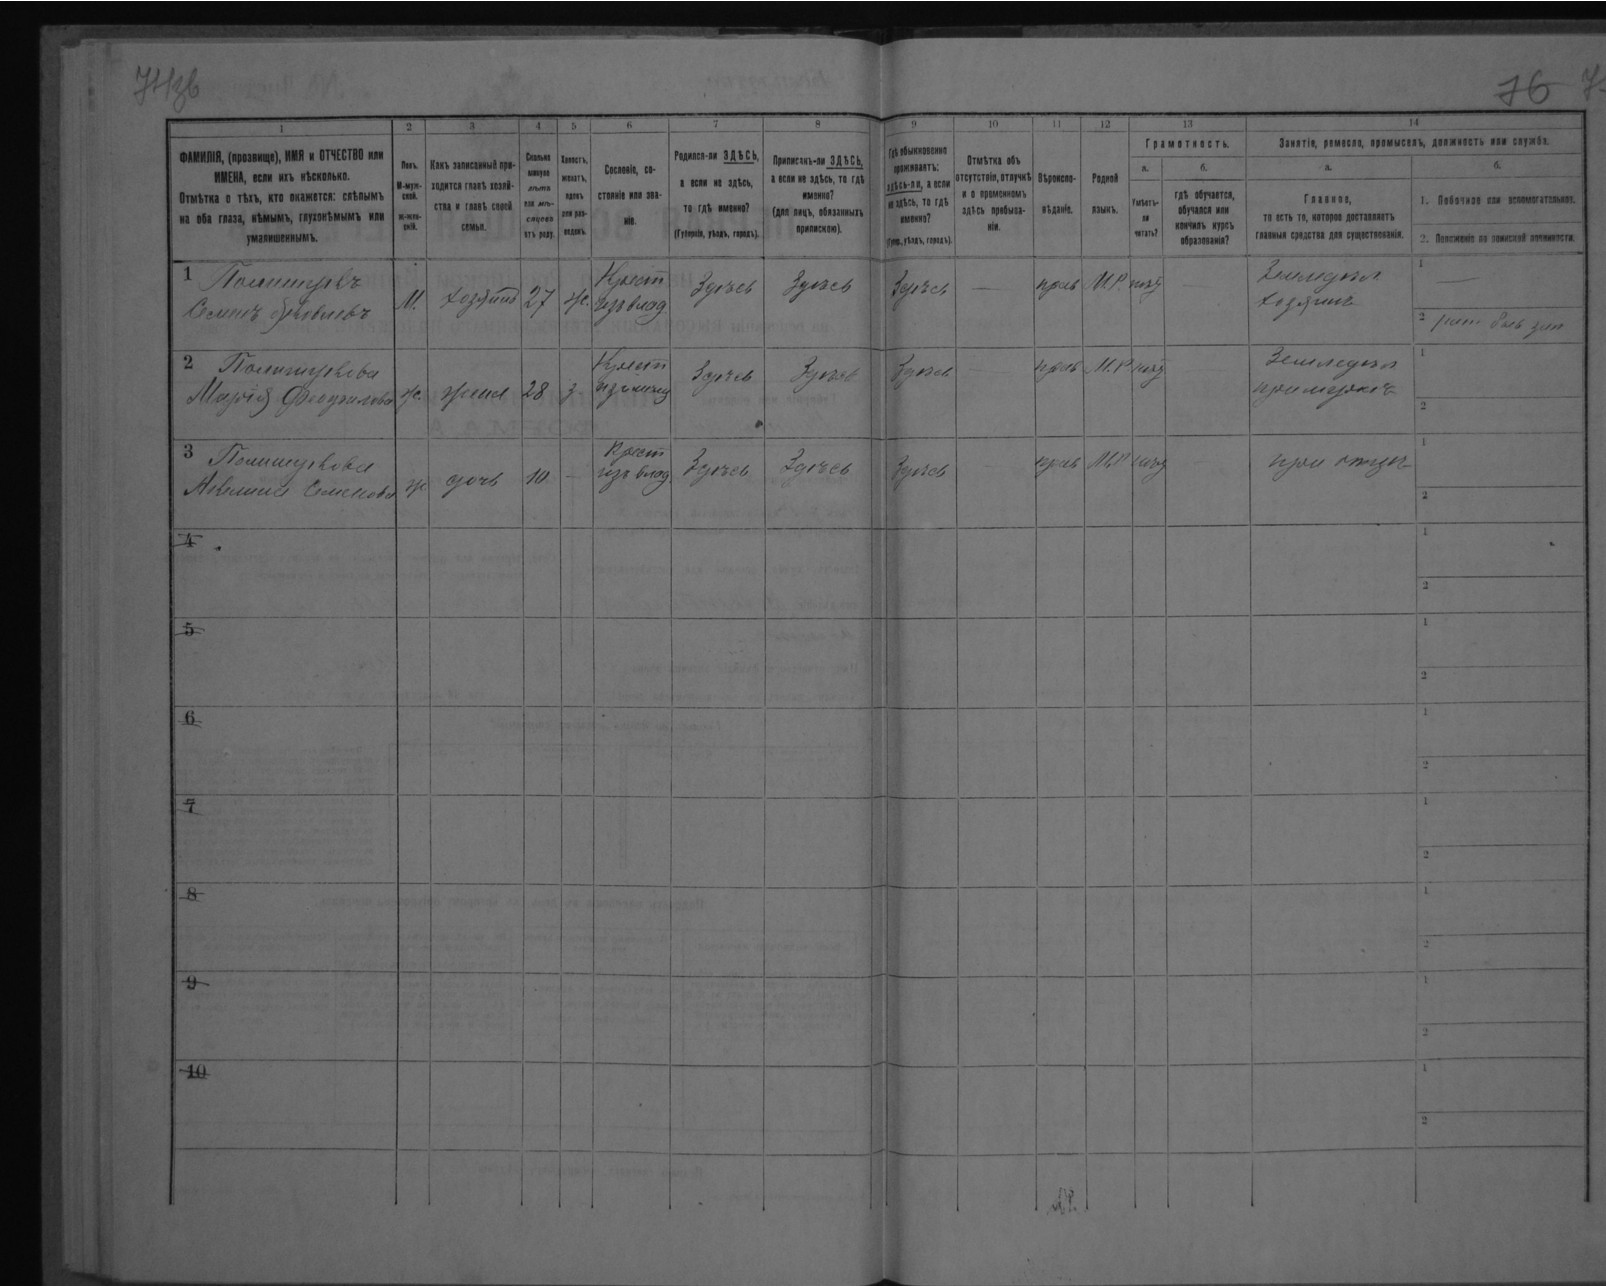 74зв
76
1 2 3 4 5 6 7 8 9 10 11 12 13 14
ФАМИЛІЯ, (прозвище), ИМЯ и ОТЧЕСТВО или
ИМЕНА, если ихъ нѣсколько.
Отмѣтка о тѣхъ, кто окажется: слѣпымъ
на оба глаза, нѣмымъ, глухонѣмымъ или
умалишеннымъ.
Полъ.
М-муж-
ской.
ж-жен-
скій.
Какъ записанный при-
ходится главѣ хозяй-
ства и главѣ своей
семьи.
Сколько
минуло
лѣтъ
или мѣ-
сяцевъ
отъ роду.
Холостъ,
женатъ,
вдовъ
или раз-
веденъ.
Сословіе, со-
стояніе или зва-
ніе.
Родился-ли ЗДѢСЬ,
а если не здѣсь,
то гдѣ именно?
(Губернія, уѣздъ, городъ).
Приписанъ-ли ЗДѢСЬ,
а если не здѣсь, то гдѣ
именно?
(для лицъ, обязанныхъ
припискою).
Гдѣ обыкновенно
проживаетъ:
здѣсь-ли, а если
не здѣсь, то гдѣ
именно?
(Губер., уѣздъ, городъ).
Отмѣтка объ
отсутствіи, отлучкѣ
и о временномъ
здѣсь пребыва-
ніи.
Вѣроиспо-
вѣданіе.
Родной
языкъ.
Грамотность.
а.
Умѣетъ-
ли
читать?
б.
гдѣ обучается,
обучался или
кончилъ курсъ
образованія?
Занятіе, ремесло, промыселъ, должность или служба.
а.
Главное,
то есть то, которое доставляетъ
главныя средства для существованія.
б.
1. Побочное или вспомогательное.
2. Положеніе по воинской повинности.
1 Полищукъ
Семенъ Яковлевъ М. хозяинъ 27 ж. Крест изъ влад Здѣсь Здѣсь Здѣсь — прав М.Р нѣт — Земледѣл хозяинъ 1 —
2
2 Полищукова
Марія ж. жена 28 з. Крест Здѣсь Здѣсь Здѣсь — прав М.Р нѣт — Земледѣл при мужѣ 1
2
3 Полищукова
Семенова ж дочь 10 — Крест изъ влад Здѣсь Здѣсь Здѣсь — прав М.Р нѣт — при отцѣ 1
2
4 1
2
5 1
2
6 1
2
7 1
2
8 1
2
9 1
2
10 1
2